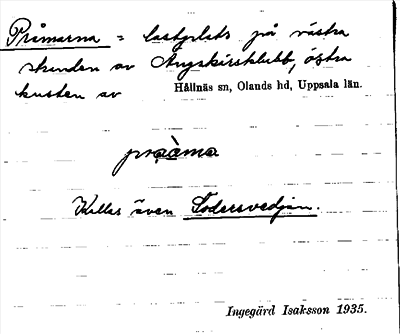 Pråmarna = lastplats på västra
stranden av Ängskärsklubb, östra
kusten av Hållnäs sn, Olands hd, Uppsala län.
pråama
Kallas även Södersvedjan.
Ingegärd Isaksson 1935.